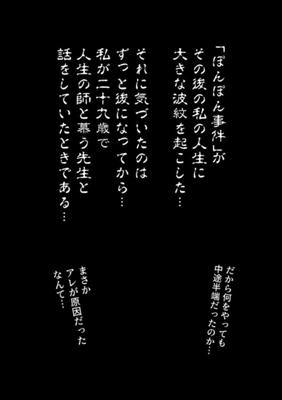 「ぽんぽん事件」が
その後の私の人生に
大きな波紋を起こした…
それに気づいたのは
ずっと後になってから…
私が二十九歳で
人生の師と慕う先生と
話をしていたときである…
だから何をやっても
中途半端だったのか…
まさか
アレが原因だった
なんて…